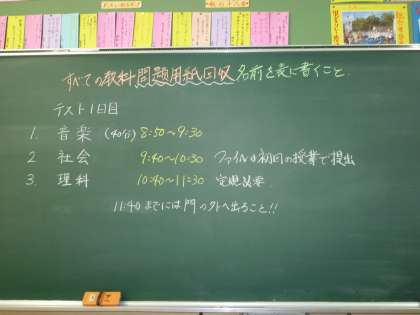 すべての教科問題用紙回収 名前を表に書くこと
テスト1日目
1. 音楽 (40分) 8:50〜9:30
2 社会 9:40〜10:30 ファイルは初回の授業で提出
3. 理科 10:40〜11:30 定規必要
11:40までには門の外へ出ること!!